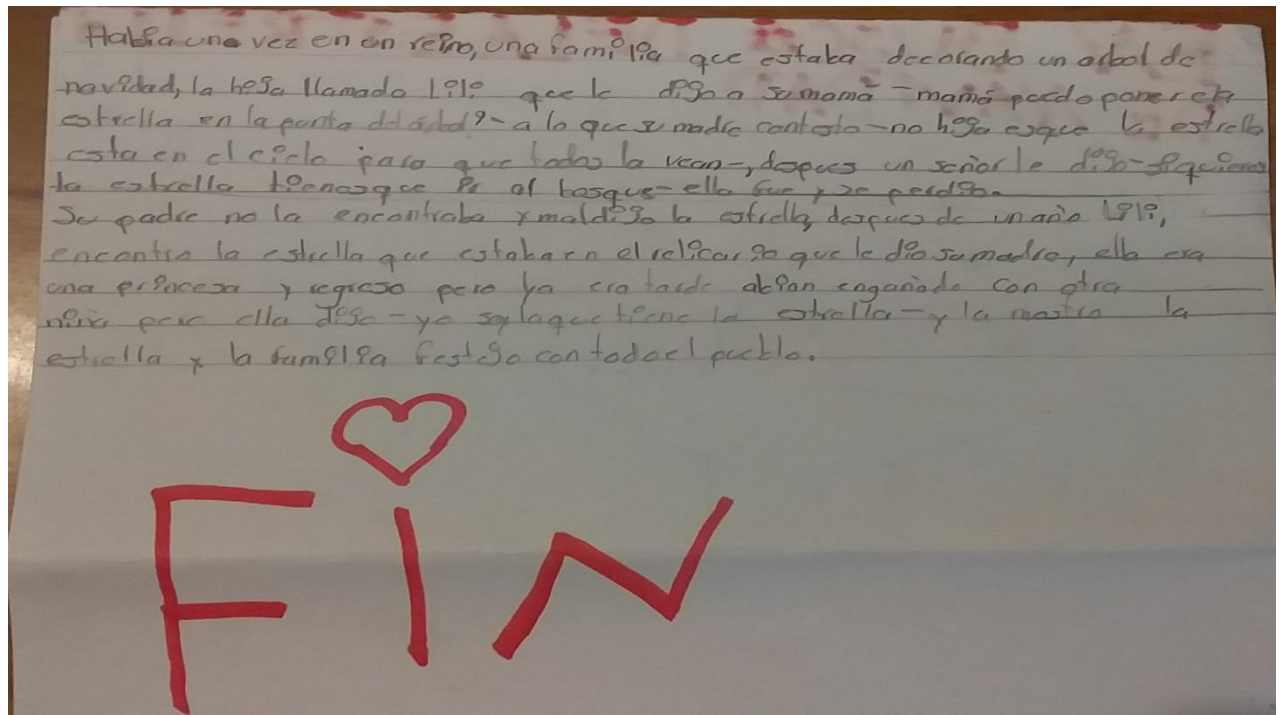 Habia una vez en un reino, una familia que estaba decorando un arbol de
navidad, la hija llamado lili que le dijo a su mamá -mamá puedo poner la
estrella en la punta del árbol?- a lo que su madre contesto -no hija esque la estrella
esta en el cielo para que todos la vean-, despues un señor le dijo -si quieres
la estrella tienes que ir al bosque- ella fue y se perdio.
Su padre no la encontraba y maldijo la estrella, despues de un año lili,
encontro la estrella que estaba en el relicario que le dio su madre, ella era
una princesa y regreso pero ya era tarde abian engañado con otra
niña pero ella dijo -yo soy la que tiene la estrella- y la mostro la
estrella y la familia festejo con todo el pueblo.
FIN